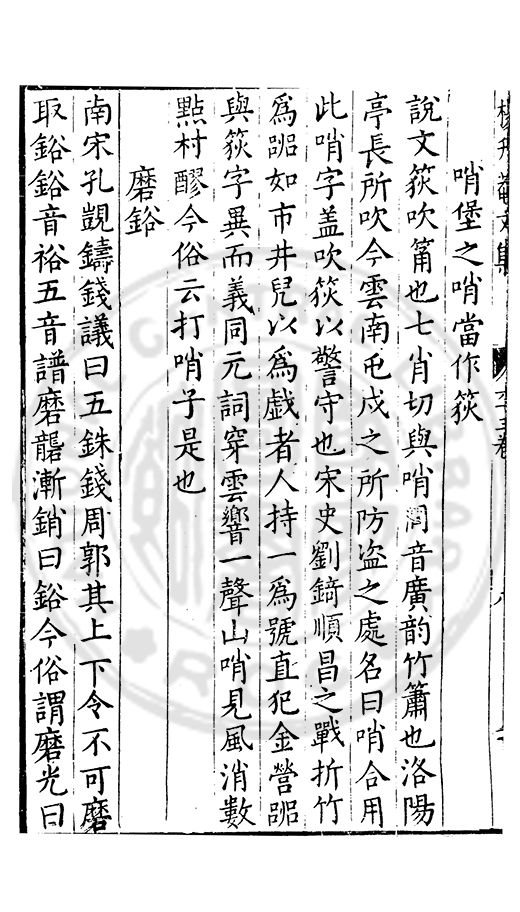 哨堡之哨當作䇝
說文䇝吹筩也七肖切與哨同音廣韵竹簫也洛陽
亭長所吹今雲南屯戍之所防盗之處名曰哨合用
此哨字盖吹䇝以警守也宋史劉錡順昌之戰折竹
爲𠾖如市井兒以爲戱者人持一爲號直犯金營𠾖
與䇝字異而義同元詞穿雲響一聲山哨見風消數
點村醪今俗云打哨子是也
磨鋊
南宋孔覬鑄錢議曰五銖錢周郭其上下令不可磨
取鋊鋊音裕五音譜磨䃧漸銷曰鋊今俗謂磨光曰